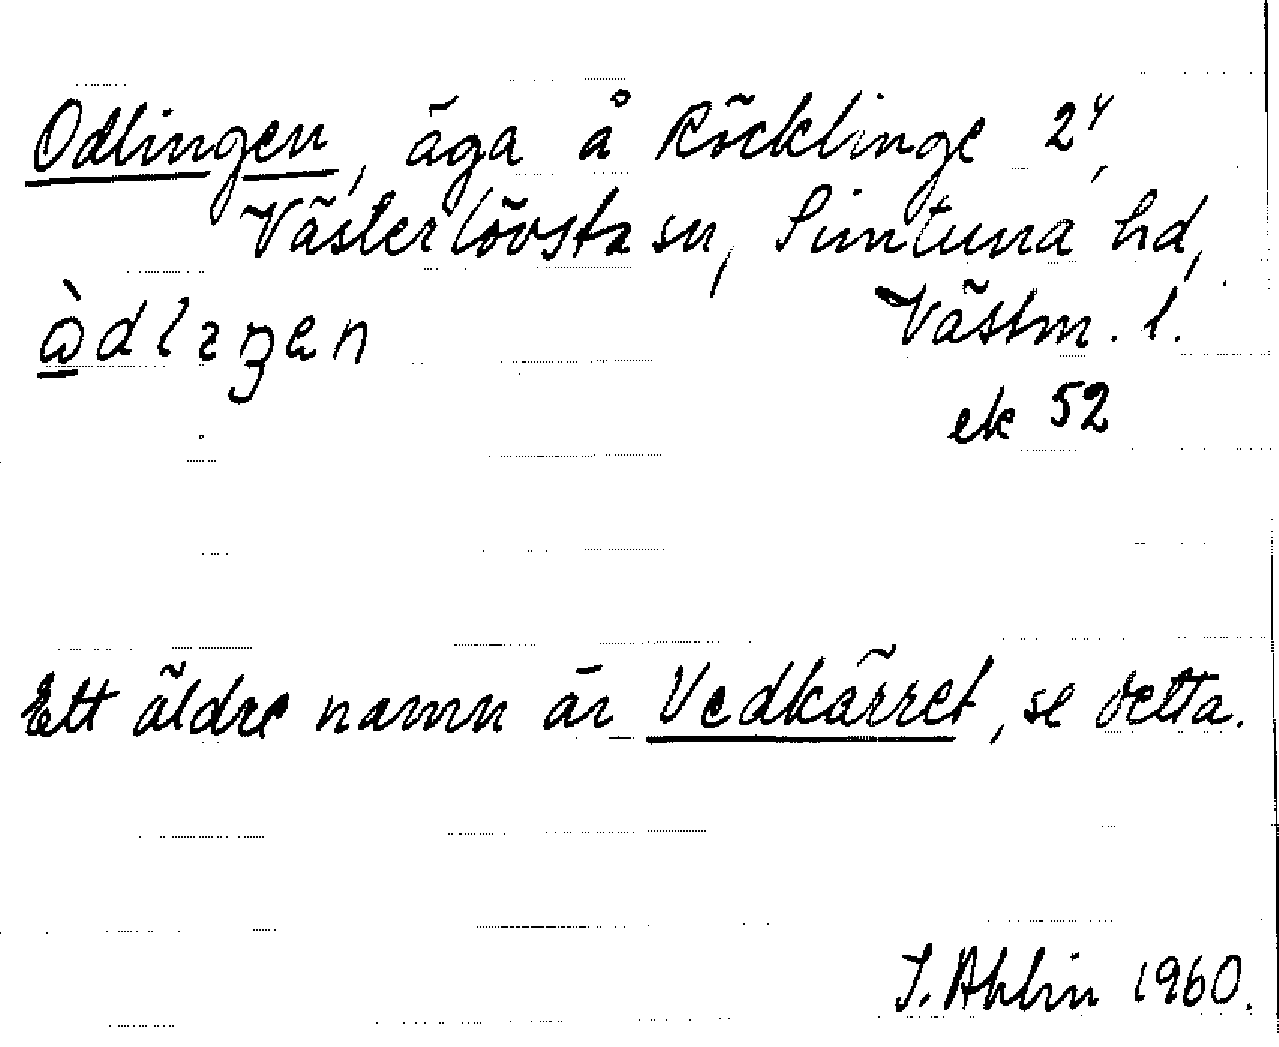 Odlingen, äga å Röcklinge 2⁴,
Västerlövsta sn, Simtuna hd,
Västm. l.
ek 52
Ett äldre namn är Vedkärret, se detta.
I. Ahlin 1960.